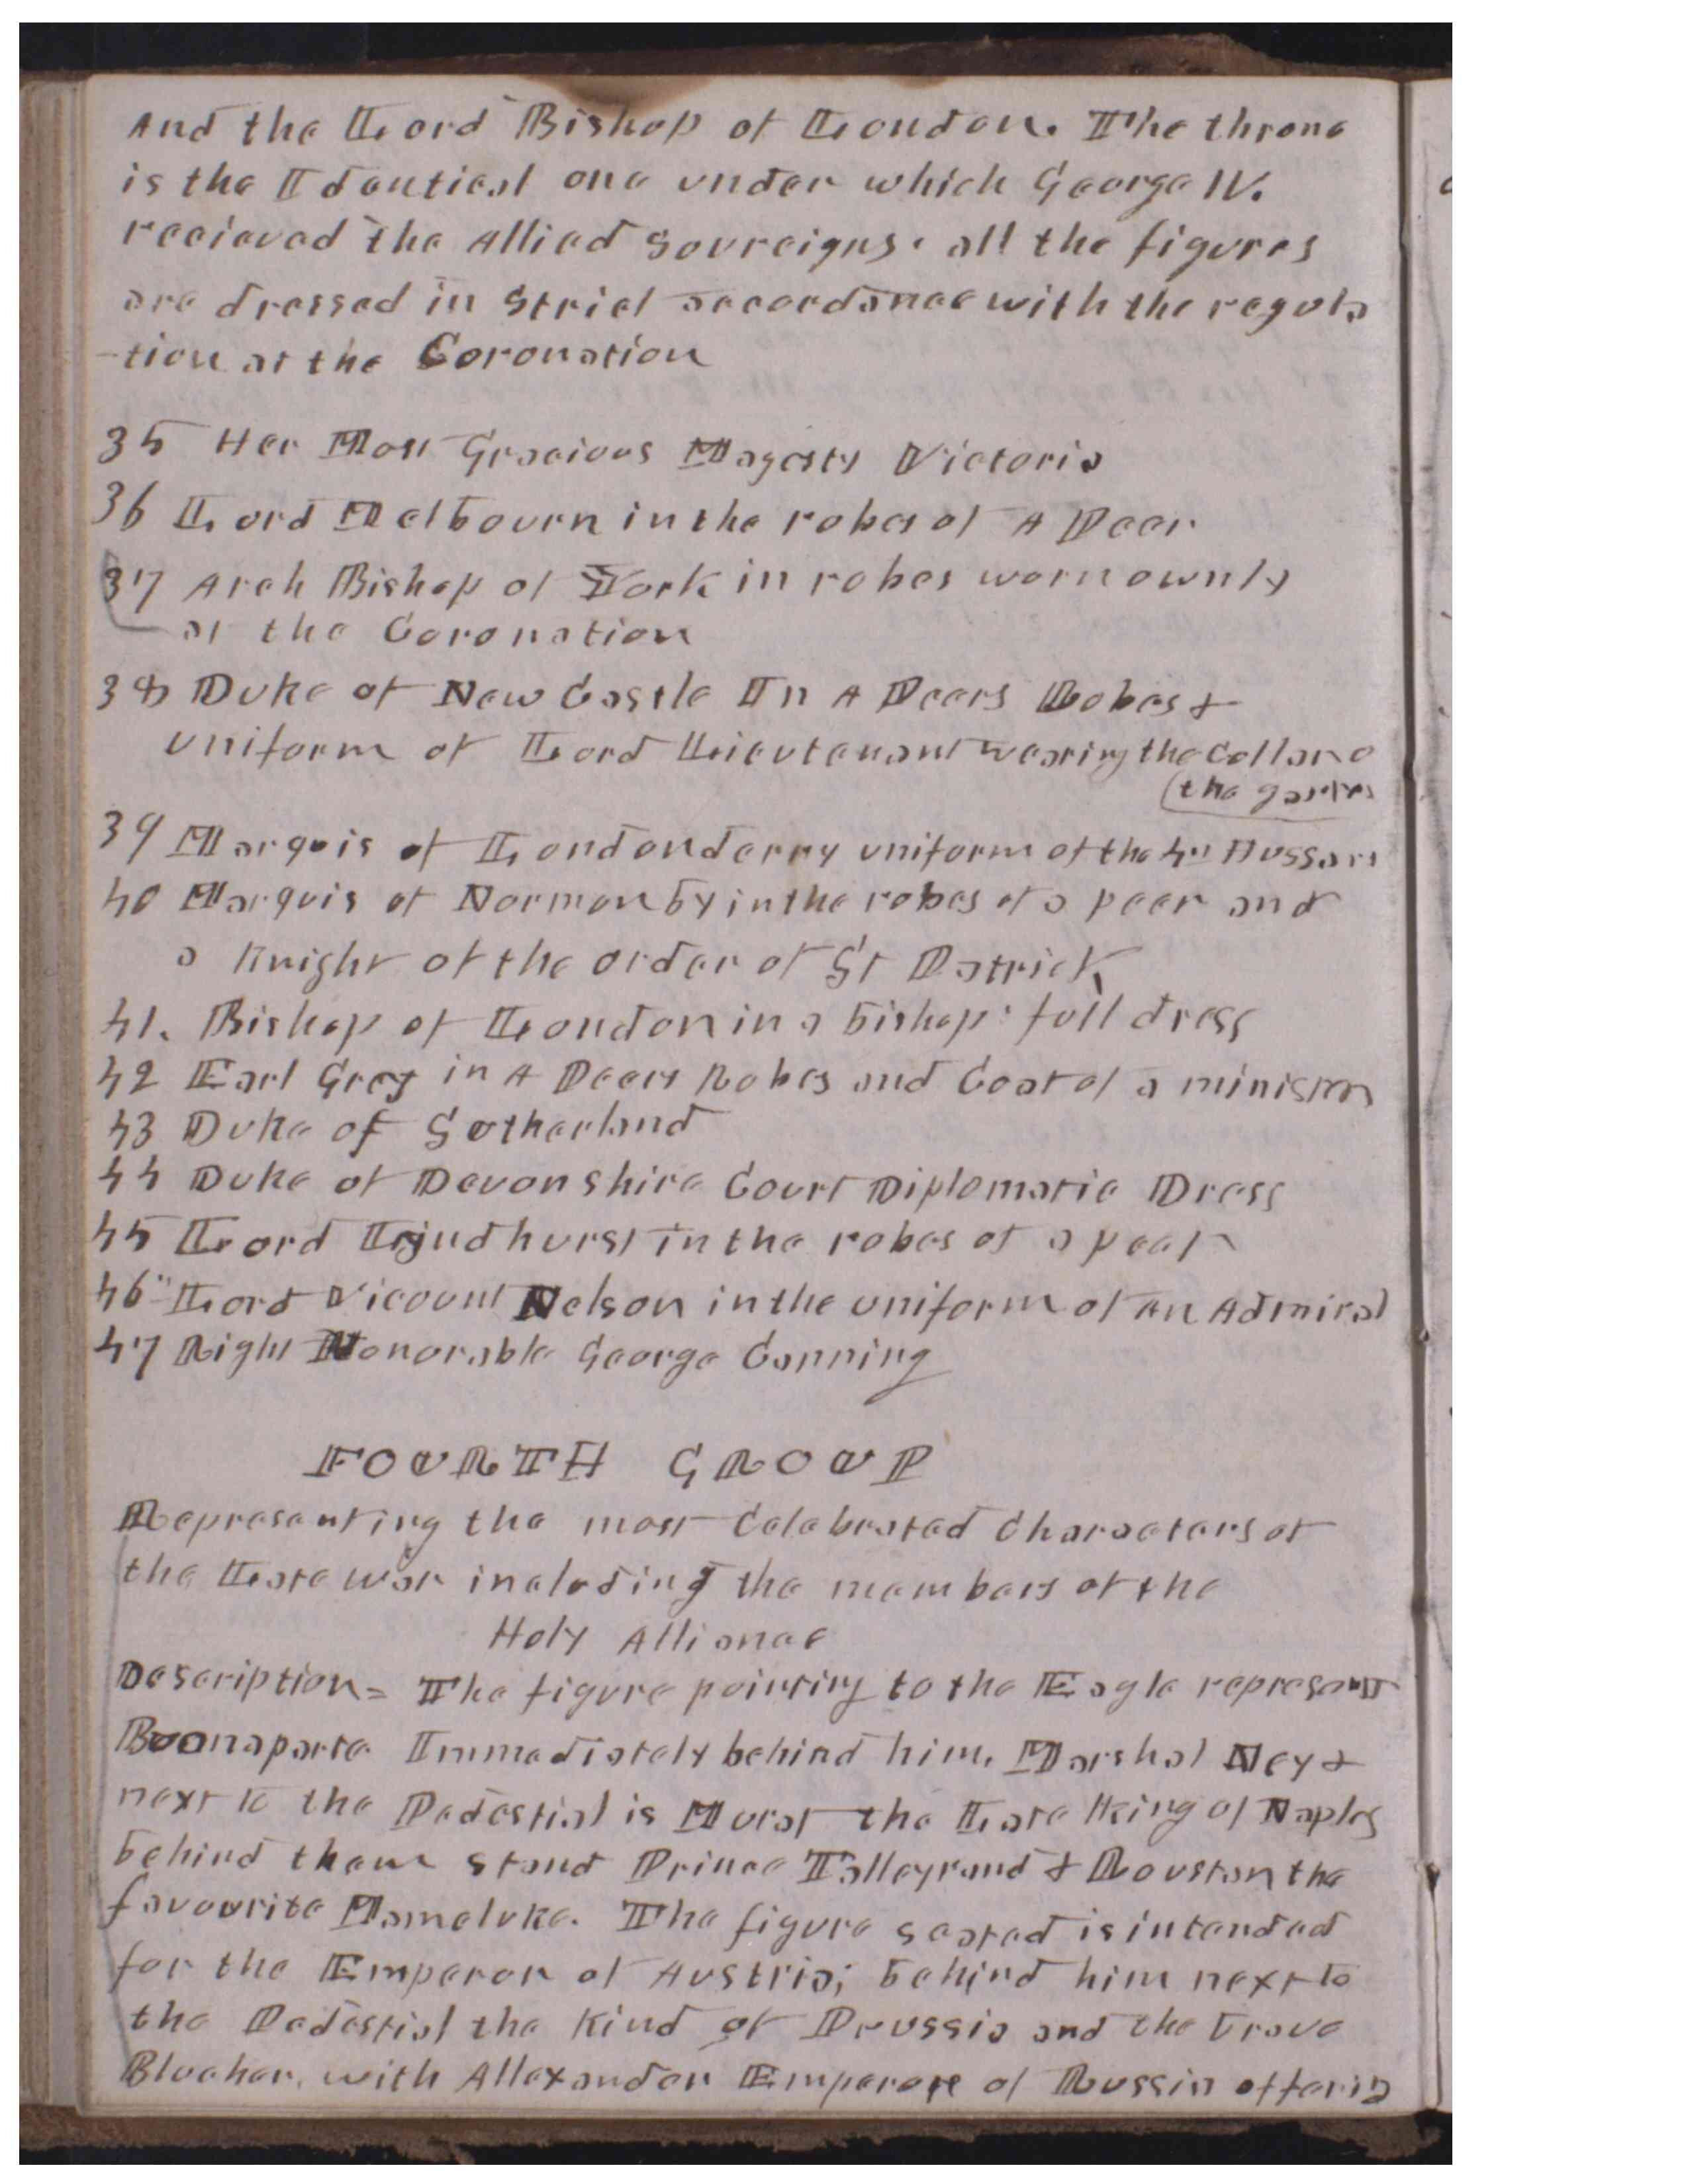 And the Lord Bishop of London. The throne
is the Identical one under which George IV.
recieved the Allied Sovreigns. all the figures
are dressed in Strict accordance with the regula
-tion at the Coronation
35 Her Most Gracious Magesty Victoria
36 Lord Melbourn in the robes of A Peer
37 Arch Bishop of York in robes worn ownly
at the Coronation
38 Duke of New Castle In A Peers Robes &
uniform of Lord Lieutenant wearing the Collar o
(the garter
39 Marquis of Londonderry uniform of the 4th Hussars
40 Marquis of Normanby in the robes of a peer and
a Knight of the order of St Patrick
41. Bishop of London in a bishop: full dress
42 Earl Grey in A Peers Robes and Coat of a minister
43 Duke of Sutherland
44 Duke of Devonshire Court Diplomatic Dress
45 Lord Lyndhurst in the robes of a pear
46" Lord Vicount Nelson in the uniform of an Admiral
47 Right Honorable George Canning
FOURTH GROUP
Representing the most Celebrated Characters of
the Late war including the members of the
Holy Alliance
Description= The figure pointing to the Eagle represent
Buonaparte Immediately behind him. Marshal Ney &
next to the Pedestial is Murat the Late King of Naples
behind them stand Prince Talleyrand & Roustan the
favourite Mameluke. The figure seated is intended
for the Emperor of Austria; behind him next to
the Pedestial the Kind of Prussia and the brave
Blucher. with Allexander Emperore of Russia offering